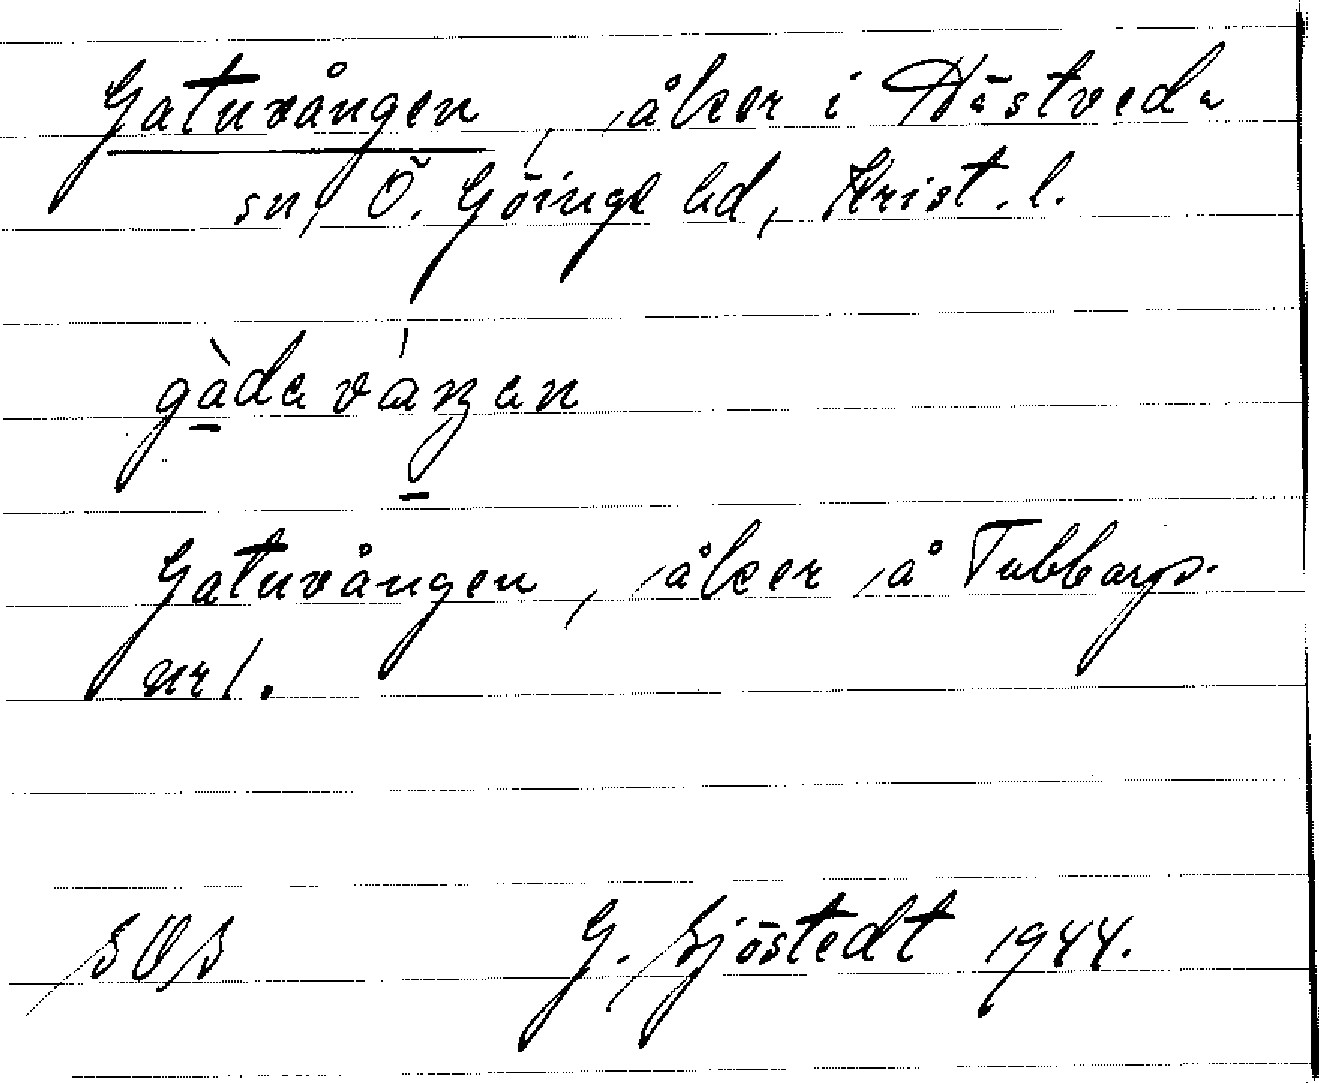 Gatuvången, åker i Hästveda
sn, Ö. Göinge hd, Krist. l.
gàdavàŋen
Gatuvången, åker å Tubbarps-
nr 1.
SOS G. Sjöstedt 1944.